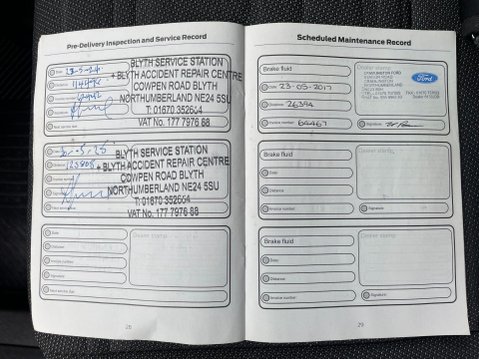 Pre-Delivery Inspection and Service Record
Date 23-5-24
Distance 114492
Invoice number
Signature
Next service due
BLYTH SERVICE STATION
+ BLYTH ACCIDENT REPAIR CENTRE
COWPEN ROAD BLYTH
NORTHUMBERLAND NE24 5SU
T: 01670 352654
VAT No. 177 7976 68
Date
Distance
Invoice number
BLYTH SERVICE STATION
+ BLYTH ACCIDENT REPAIR CENTRE
COWPEN ROAD BLYTH
NORTHUMBERLAND NE24 5SU
T: 01670 352654
VAT No. 177 7976 68
Date
Distance
Invoice number
Signature
Next service due
Dealer stamp
28
Scheduled Maintenance Record
Brake fluid
Date 23-05-2017
Distance 26394
Invoice number 64467
Dealer stamp
Ford
Signature
Brake fluid
Date
Distance
Invoice number
Dealer stamp
Signature
Brake fluid
Date
Distance
Invoice number
Dealer stamp
Signature
29